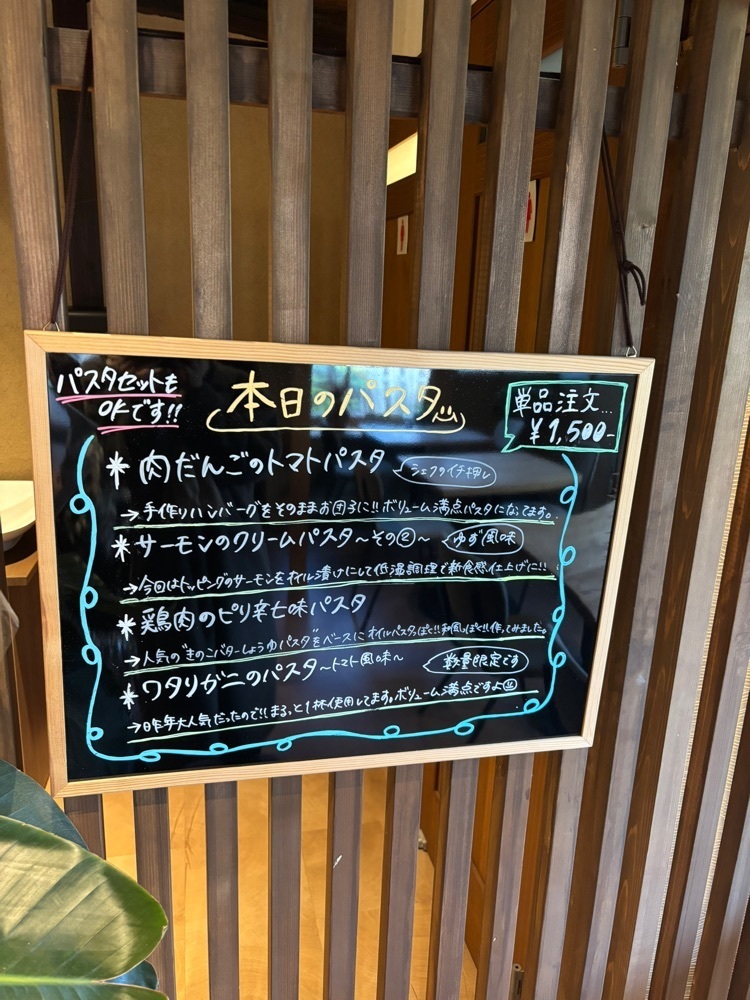 パスタセットも
OKです!!
本日のパスタ
単品注文...
¥1,500-
* 肉だんごのトマトパスタ
シェフのイチ押し
→手作りハンバーグをそのままお団子に!!ボリューム満点パスタになってます。
* サーモンのクリームパスタ〜その②〜
ゆず風味
→今回はトッピングのサーモンをオイル漬けにして低温調理で新食感仕上げに!!
* 鶏肉のピリ辛七味パスタ
→人気の"きのこバターしょうゆパスタ"をベースにオイルパスタっぽく!!和風っぽく!!作ってみました。
* ワタリガニのパスタ〜トマト風味〜
数量限定です
→昨年大人気だったので!!まるっと1杯使用してます。ボリューム満点ですよ